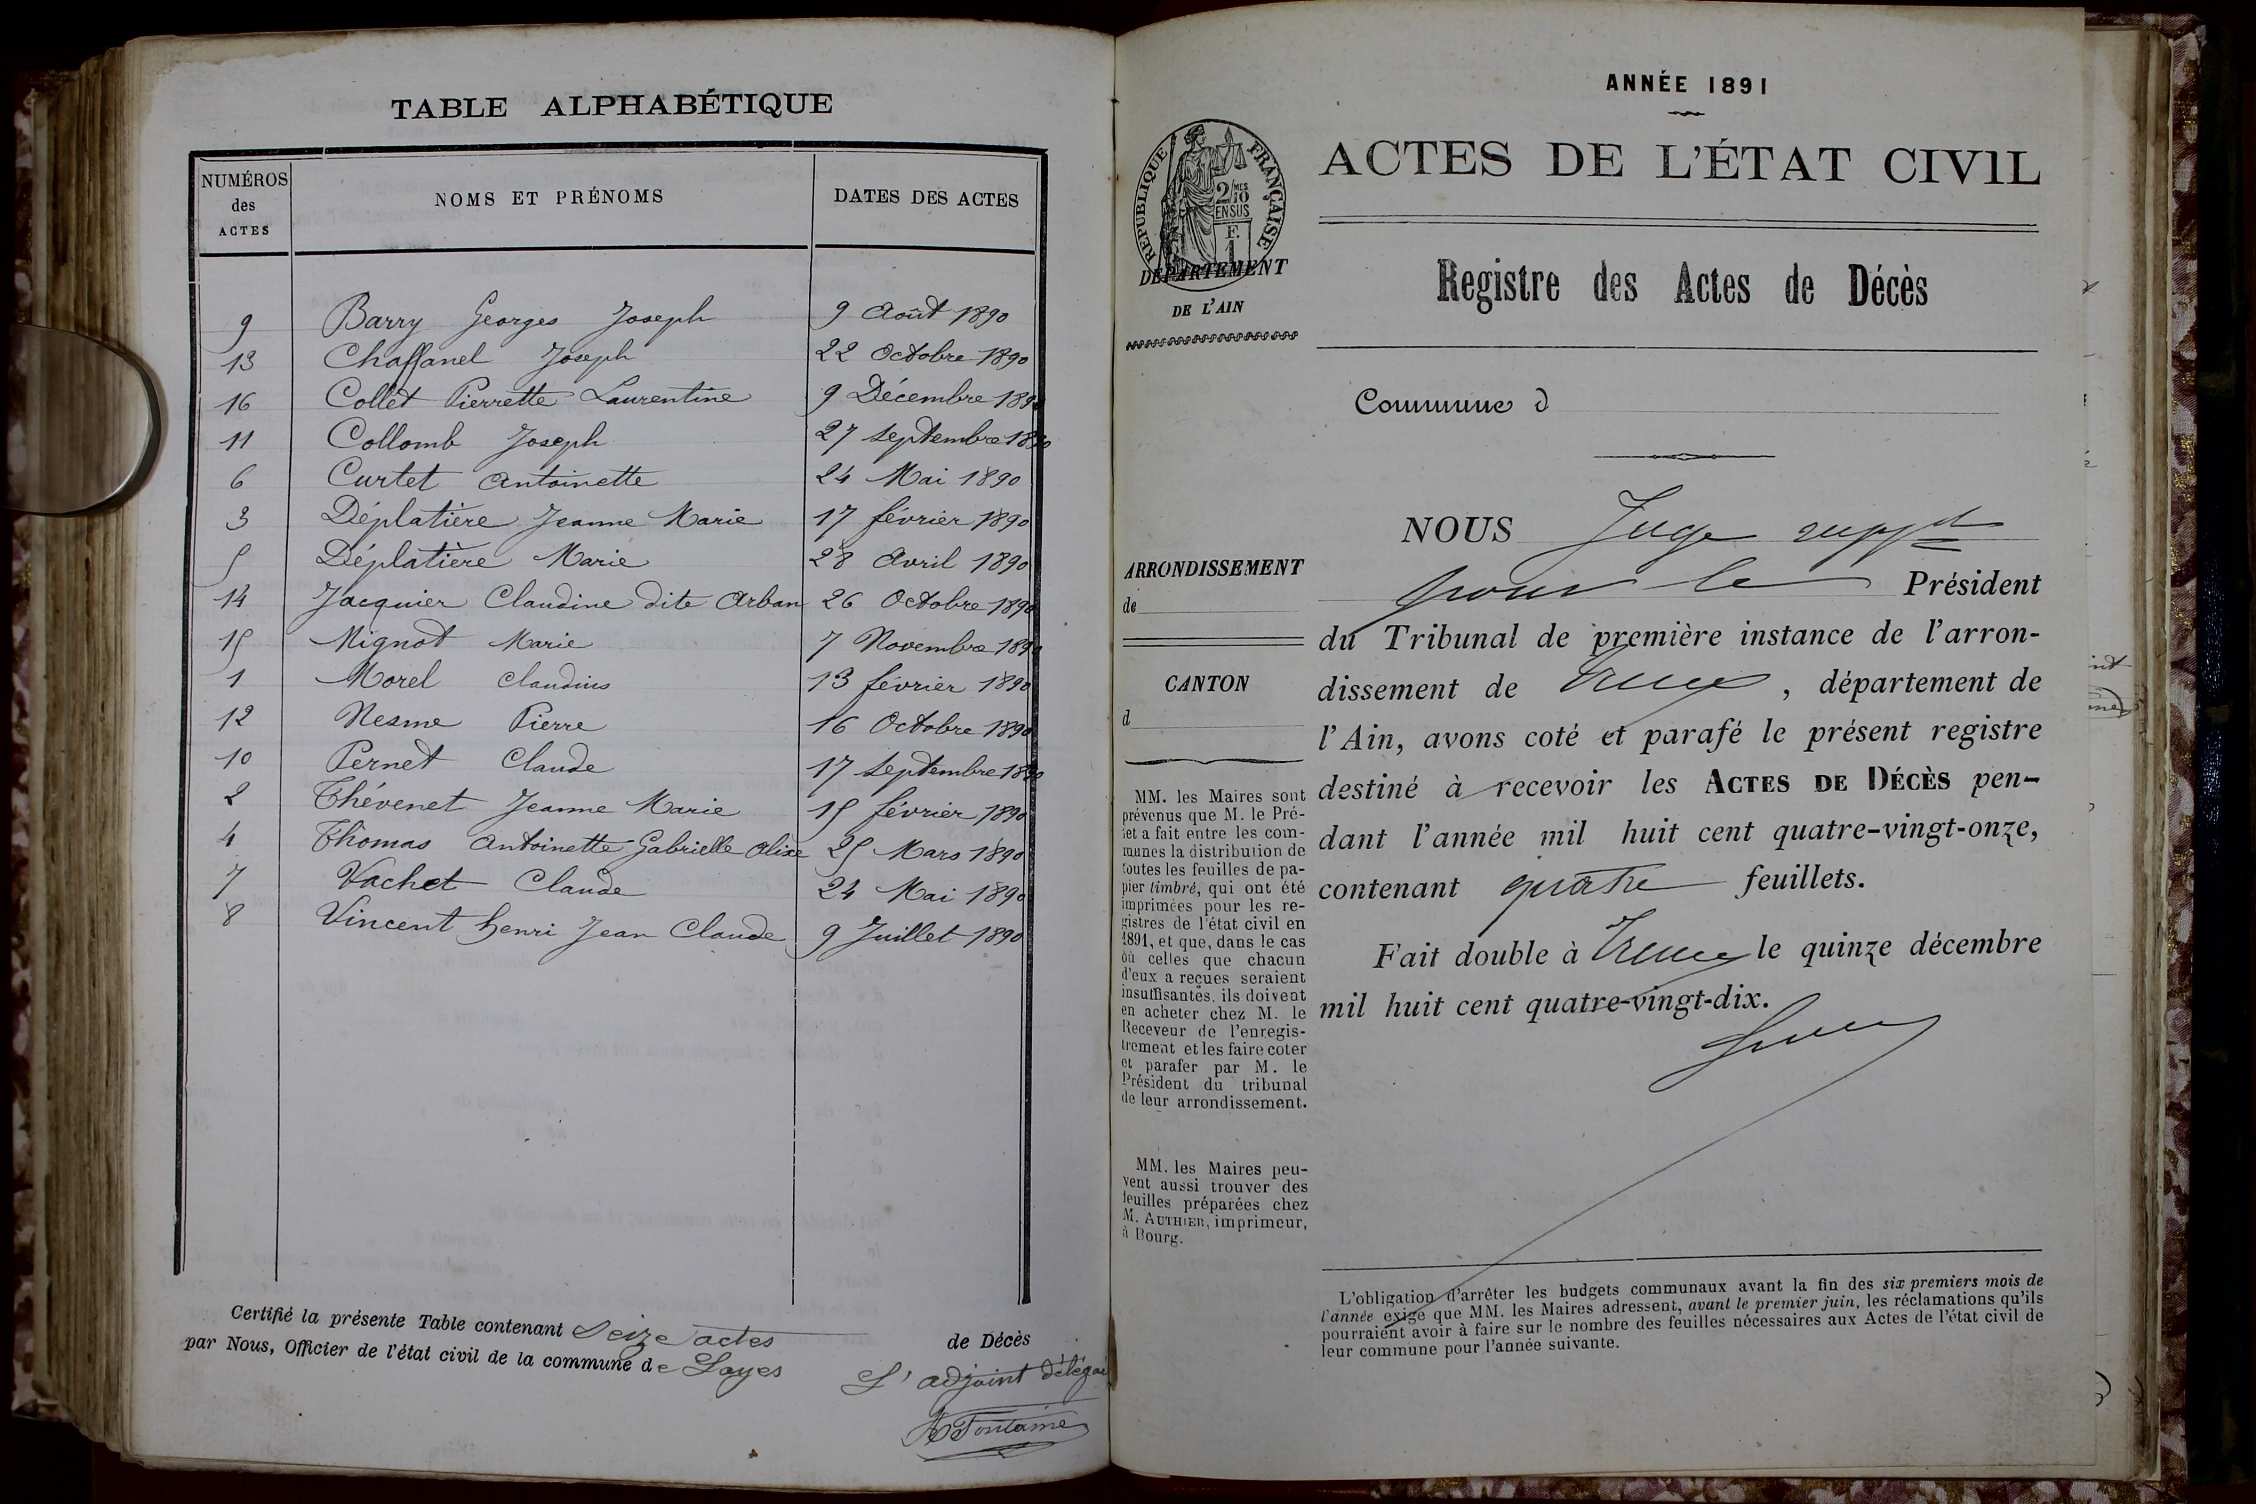 TABLE ALPHABÉTIQUE
NUMÉROS des ACTES NOMS ET PRÉNOMS DATES DES ACTES
9 Barry Georges Joseph 9 Août 1890
13 Chaffanel Joseph 22 Octobre 1890
16 Collet Pierrette Laurentine 9 Décembre 1890
11 Collomb Joseph 27 septembre 1890
6 Curtet Antoinette 24 Mai 1890
3 Déplatière Jeanne Marie 17 février 1890
5 Déplatière Marie 28 Avril 1890
14 Jacquier Claudine dite Arban 26 Octobre 1890
15 Mignot Marie 7 Novembre 1890
1 Morel Claudius 13 février 1890
12 Nesme Pierre 16 Octobre 1890
10 Pernet Claude 17 septembre 1890
2 Thévenet Jeanne Marie 15 février 1890
4 Thomas Antoinette Gabrielle Alixe 25 Mars 1890
7 Vachet Claude 24 Mai 1890
8 Vincent henri Jean Claude 9 Juillet 1890
Certifié la présente Table contenant Seize actes de Décès
par Nous, Officier de l'état civil de la commune de Loyes
L'adjoint délégué
Fontaine
ANNÉE 1891
ACTES DE L'ÉTAT CIVIL
RÉPUBLIQUE FRANÇAISE
2/10MES EN SUS
F. 1
DÉPARTEMENT
DE L'AIN
Registre des Actes de Décès
Commune d
ARRONDISSEMENT
de
CANTON
d
MM. les Maires sont
prévenus que M. le Pré-
fet a fait entre les com-
munes la distribution de
toutes les feuilles de pa-
pier timbré, qui ont été
imprimées pour les re-
gistres de l'état civil en
1891, et que, dans le cas
où celles que chacun
d'eux a reçues seraient
insuffisantes, ils doivent
en acheter chez M. le
Receveur de l'enregis-
trement et les faire coter
et parafer par M. le
Président du tribunal
de leur arrondissement.
MM. les Maires peu-
vent aussi trouver des
feuilles préparées chez
M. AUTHIER, imprimeur,
à Bourg.
NOUS Juge suppt
pour le Président
du Tribunal de première instance de l'arron-
dissement de Trévoux, département de
l'Ain, avons coté et parafé le présent registre
destiné à recevoir les ACTES DE DÉCÈS pen-
dant l'année mil huit cent quatre-vingt-onze,
contenant quatre feuillets.
Fait double à Trévoux le quinze décembre
mil huit cent quatre-vingt-dix.
L'obligation d'arrêter les budgets communaux avant la fin des six premiers mois de
l'année exige que MM. les Maires adressent, avant le premier juin, les réclamations qu'ils
pourraient avoir à faire sur le nombre des feuilles nécessaires aux Actes de l'état civil de
leur commune pour l'année suivante.